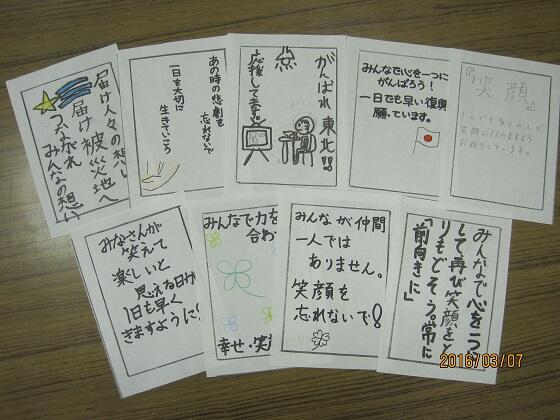 届け人々の想い
届け被災地へ
つながれ
みんなの想い
あの時の悲劇を
忘れないで
一日を大切に
生きていこう
がんばれ東北!!
応援してます。
みんなで心を一つに
がんばろう!
一日でも早い復興
願っています。
『笑顔』
1人でも多くの人が
笑顔になれますよう
お祈りしています。
みなさんが
笑えて
楽しいと
思える日が
1日も早く
きますように!
みんなで力を
合わ
幸せ・笑
みんなが仲間
一人では
ありません。
笑顔を
忘れないで!
みんなで心を一つに
して再び笑顔をと
りもどそう。常に
「前向きに」
2016/03/07